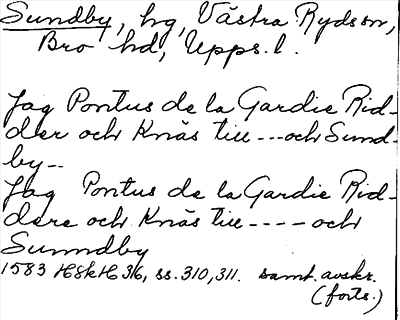 Sundby, hg, Västra Ryds sn,
Bro hd, Upps. l.
Jag Pontus de la Gardie Rid-
der och Knäs till --- och Sund-
by--
Jag Pontus de la Gardie Rid-
dere och Knäs till ---- och
Sunndby
1583 HSkH 36, ss. 310, 311. samt. avskr.
(forts.)